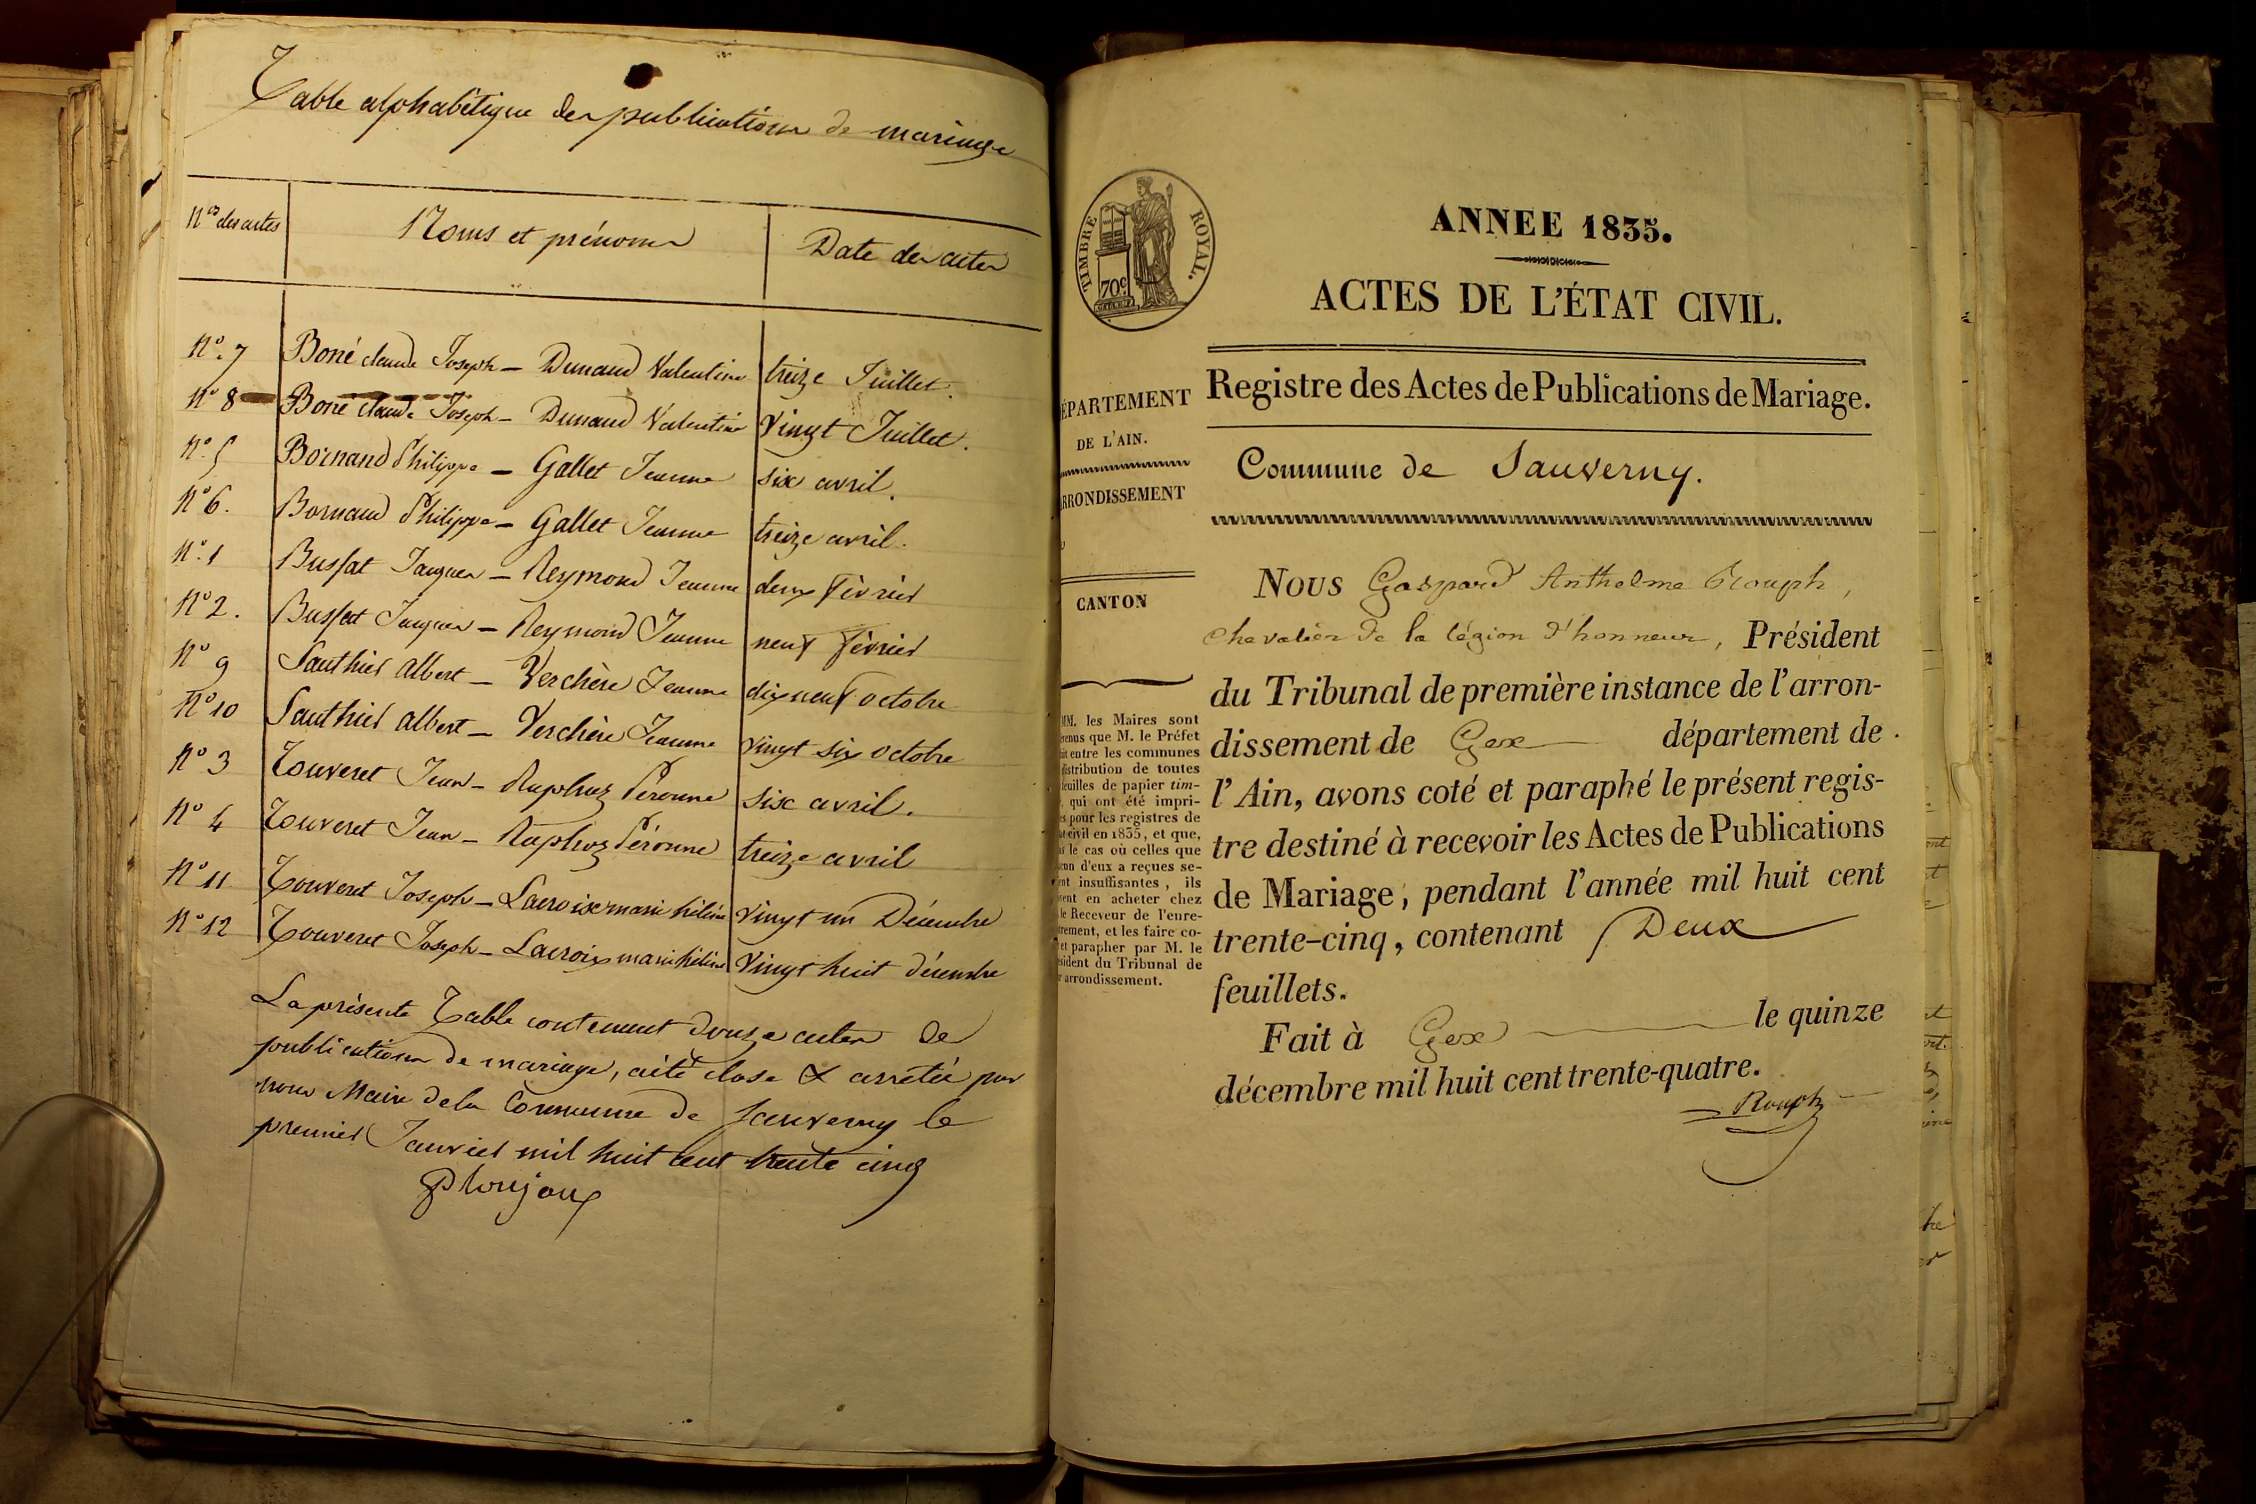 Table alphabétique des publications de mariage
Nos des actes Noms et prénoms Date des actes
No. 7 Boné claude Joseph - Dunand Valentine treize Juillet.
No 8 Boné claude Joseph - Dunand Valentine Vingt Juillet.
No. 5 Bornand Philippe - Gallet Jeanne six avril.
No 6. Bornand Philippe - Gallet Jeanne treize avril.
No. 1 Bussat Jacques - Reymond Jeanne deux février
No 2. Bussat Jacques - Reymond Jeanne neuf février
No 9 Sauthier Albert - Verchère Jeanne dix neuf octobre
No 10 Sauthier Albert - Verchère Jeanne vingt six octobre
No 3 Touveret Jean - Raphoz Péronne six avril.
No 4 Touveret Jean - Raphoz Péronne treize avril
No 11 Touveret Joseph - Lacroix marie hélène vingt un Décembre
No 12 Touveret Joseph - Lacroix marie hélène Vingt huit décembre
La présente Table contenant douze actes de
publications de mariage, a été close & arrêtée par
nous Maire de la Commune de Sauverny le
premier Janvier mil huit cent trente cinq
TIMBRE ROYAL.
70c
ANNEE 1835.
ACTES DE L'ÉTAT CIVIL.
ÉPARTEMENT
DE L'AIN.
RRONDISSEMENT
CANTON
MM. les Maires sont
venus que M. le Préfet
ait entre les communes
distribution de toutes
feuilles de papier tim-
, qui ont été impri-
es pour les registres de
at civil en 1835, et que,
le cas où celles que
cun d'eux a reçues se-
ent insuffisantes, ils
vent en acheter chez
le Receveur de l'enre-
trement, et les faire co-
et parapher par M. le
ésident du Tribunal de
r arrondissement.
Registre des Actes de Publications de Mariage.
Commune de Sauverny.
Nous Gaspard Anthelme Rouph,
chevalier de la légion d'honneur, Président
du Tribunal de première instance de l'arron-
dissement de Gex département de
l'Ain, avons coté et paraphé le présent regis-
tre destiné à recevoir les Actes de Publications
de Mariage, pendant l'année mil huit cent
trente-cinq, contenant Deux
feuillets.
Fait à Gex le quinze
décembre mil huit cent trente-quatre.
Rouph